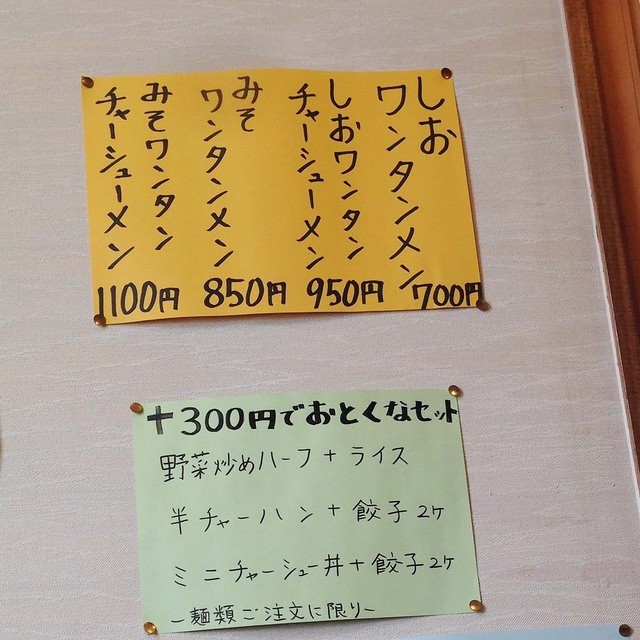 しお
ワンタンメン
700円
しおワンタン
チャーシューメン
950円
みそ
ワンタンメン
850円
みそワンタン
チャーシューメン
1100円
+300円でおとくなセット
野菜炒めハーフ+ライス
半チャーハン+餃子2ケ
ミニチャーシュー丼+餃子2ケ
-麺類ご注文に限り-